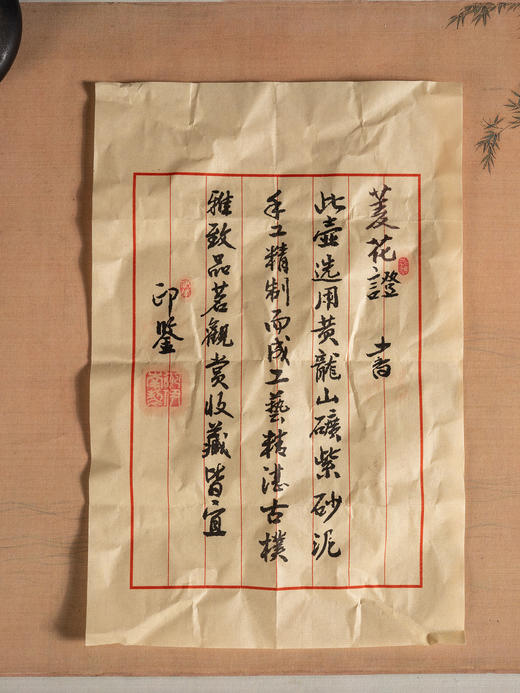 菱花證書
此壺选用黄龍山礦紫砂泥
手工精制而成工藝精湛古樸
雅致品茗觀赏收藏皆宜
印鑒